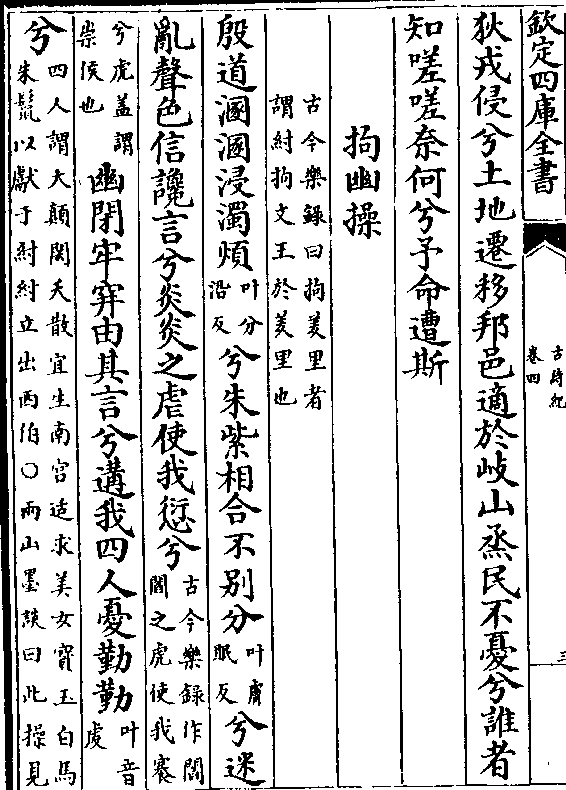 欽定四庫全書
古詩紀
卷四
三
狄戎侵兮土地遷移邦邑適於岐山烝民不憂兮誰者
知嗟嗟奈何兮予命遭斯
拘幽操
古今樂録曰拘羑里者
謂紂拘文王於羑里也
殷道溷溷浸濁煩
叶分
沿反
兮朱紫相合不别分
叶膚
眠反
兮迷
亂聲色信讒言兮炎炎之虐使我愆兮
古今樂録作閻
閻之虎使我褰
兮虎盖謂
崇侯也
幽閉牢穽由其言兮遘我四人憂勤勤
叶音
虔
兮
四人謂太顛閎夭散宜生南宫适求美女寳玉白馬
朱鬛以獻于紂紂立出西伯○兩山墨談曰此操見